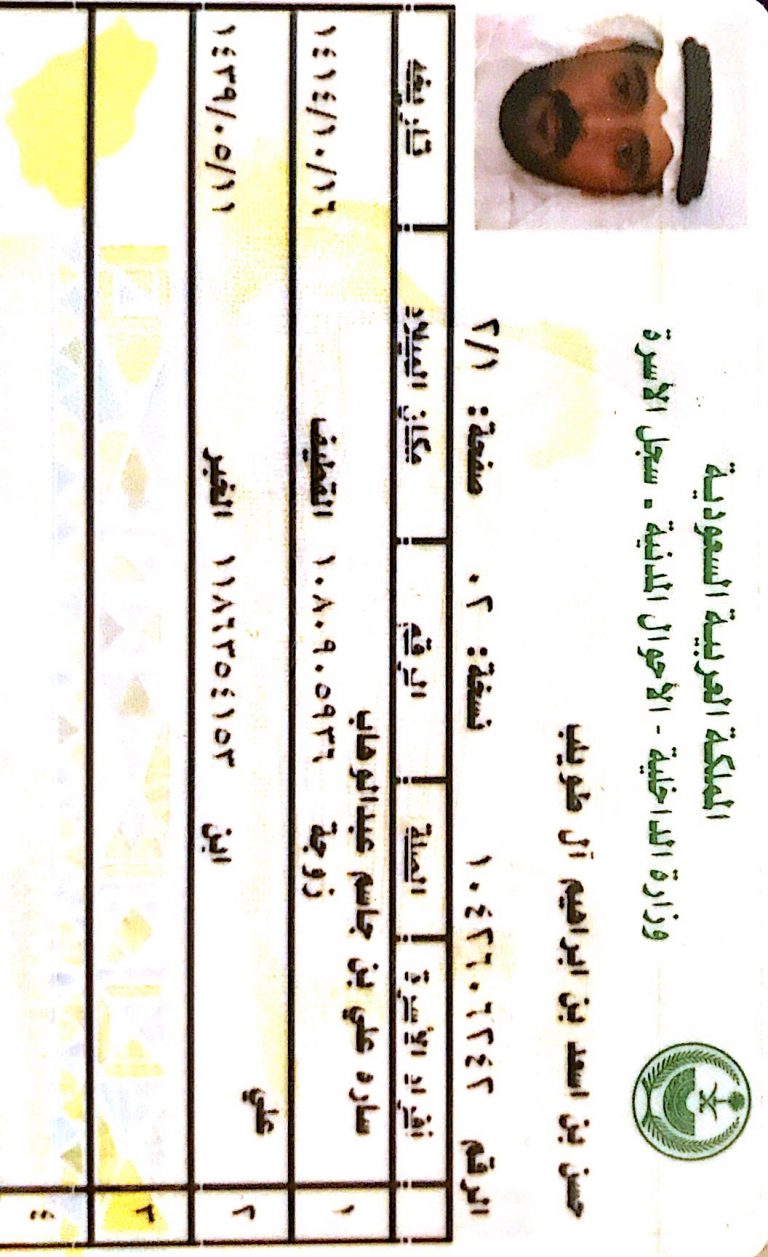 المملكة العربية السعودية
وزارة الداخلية - الأحوال المدنية - سجل الأسرة
حسن بن اسعد بن ابراهيم آل طويلب
الرقم ١٠٤٣٦٠٦٢٤٢ نسخة: ٠٢ صفحة: ٢/١
افراد الأسرة الصلة الرقم مكان الميلاد تاريخه
١ ساره علي بن جاسم عبدالوهاب
زوجة ١٠٨٠٩٠٥٩٣٦ القطيف ١٤١٤/١٠/١٦
٢ علي
ابن ١١٨٦٣٥٤١٥٣ الخبر ١٤٣٩/٠٥/١١
٣
٤